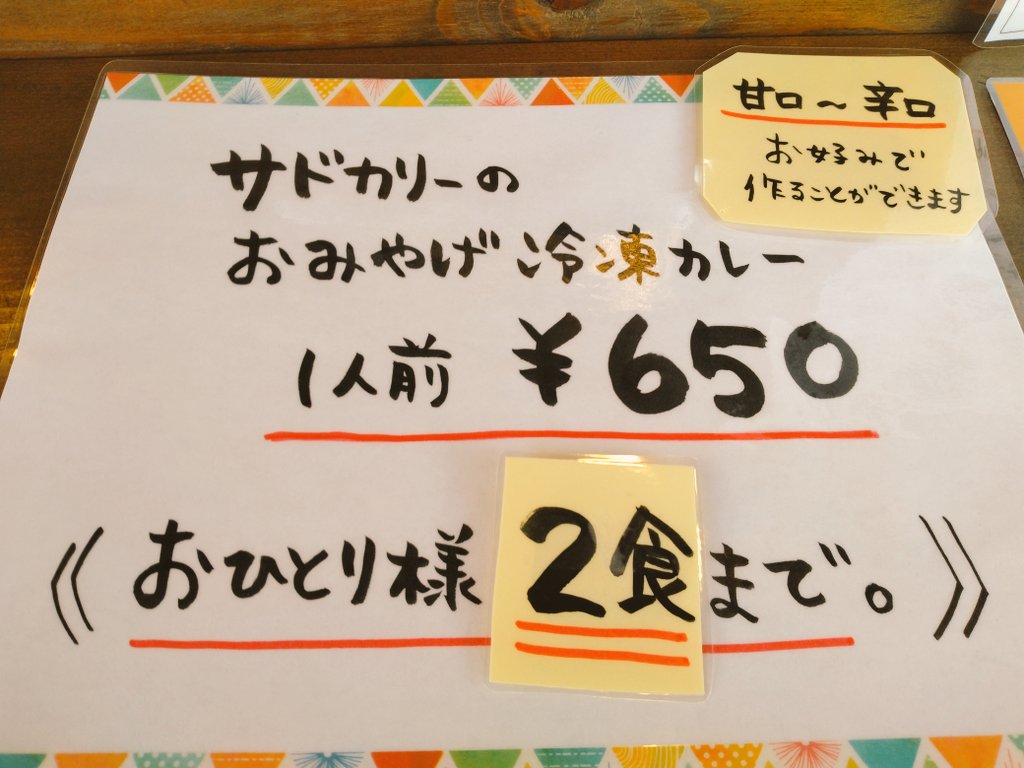 甘口～辛口
お好みで
作ることができます
サドカリーの
おみやげ冷凍カレー
1人前 ¥650
《おひとり様2食まで。》